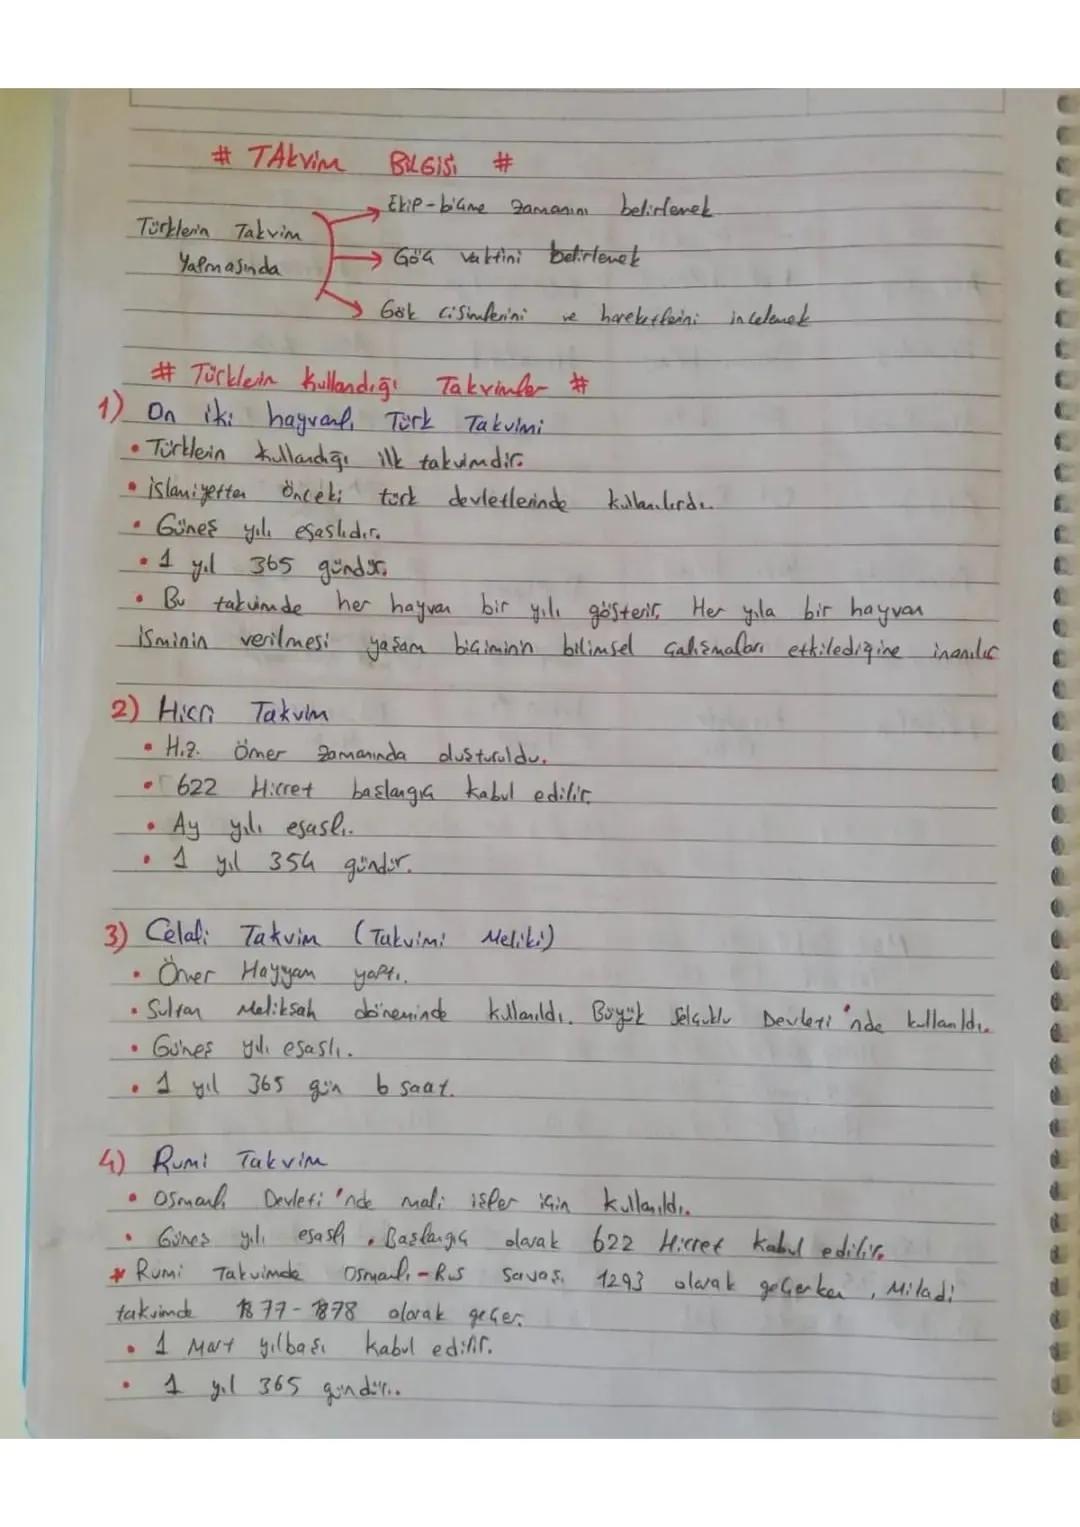 # TAkvim BiLGiSi #
Ekip-biçme zamanını belirlemek
Türklerin Takvim
Yapmasında
Göç vaktini belirlemek
Gök cisimlerini ve hareketlerini incelemek
# Türklerin Kullandığı Takvimler #
1) On iki hayvanlı Türk Takvimi
• Türklerin kullandığı ilk takvimdir.
• islamiyetten önceki türk devletlerinde kullanılırdı.
• Güneş yılı esaslıdır.
• 1 yıl 365 gündür.
• Bu takvimde her hayvan bir yılı gösterir. Her yıla bir hayvan
isminin verilmesi yaşam biçiminin bilimsel çalışmaları etkilediğine inanılır
2) Hicri Takvim
• Hz. Ömer zamanında oluşturuldu.
• 622 Hicret başlangıç kabul edilir.
• Ay yılı esaslı.
• 1 yıl 354 gündür.
3) Celali Takvim (Takvimi Meliki)
• Ömer Hayyam yaptı.
• Sultan Melikşah döneminde kullanıldı. Büyük Selçuklu Devleti'nde kullanıldı.
• Güneş yılı esaslı.
• 1 yıl 365 gün 6 saat.
4) Rumi Takvim
• Osmanlı Devleti'nde mali işler için kullanıldı.
• Güneş yılı esaslı. Başlangıç olarak 622 Hicret kabul edilir.
* Rumi Takvimde Osmanlı-Rus Savaşı 1293 olarak geçerken, Miladi
takvimde 1877-1878 olarak geçer.
• 1 Mart yılbaşı kabul edilir.
• 1 yıl 365 gündür.